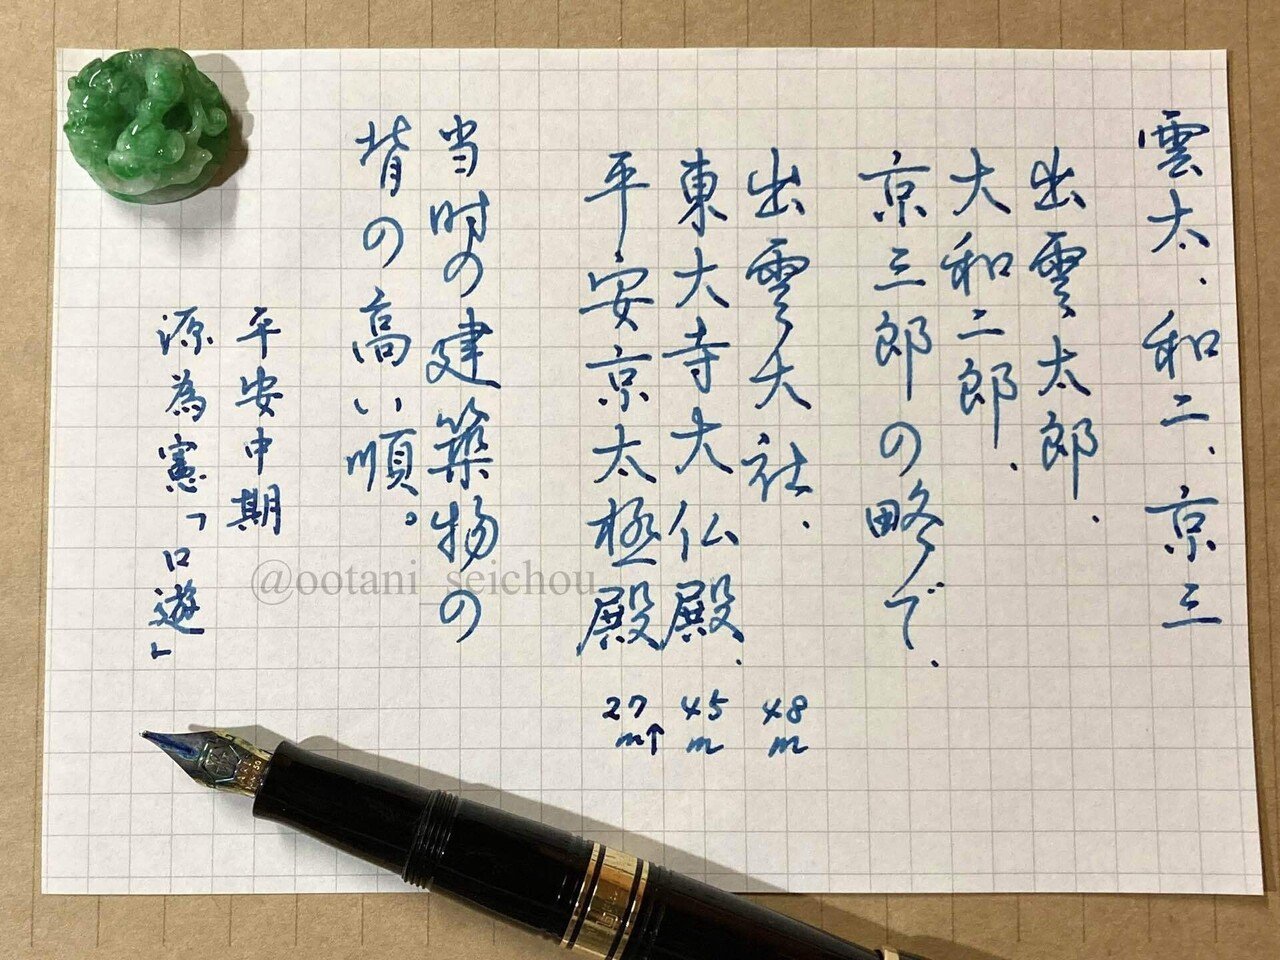 雲太、和二、京三
出雲太郎、
大和二郎、
京三郎の略で、
出雲大社、
48m
東大寺大仏殿、
45m
平安京太極殿
27m↑
当時の建築物の
背の高い順。
平安中期
源為憲「口遊」
@ootani_seichou